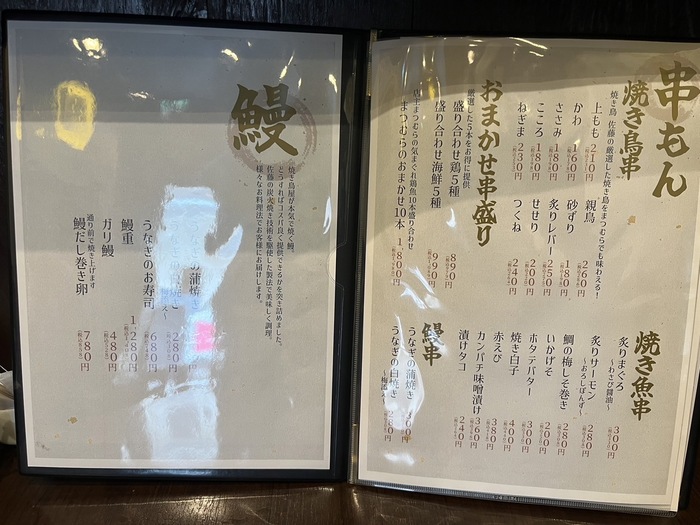 串もん
焼き鳥串
焼き鳥 佐藤の厳選した焼き鳥をまつむらでも味わえる!
上もも 210円
かわ 160円
ささみ 180円
こころ 180円
ねぎま 230円
親鳥 260円
砂ずり 180円
炙りレバー 250円
せせり 220円
つくね 240円
おまかせ串盛り
厳選した5本をお得に提供
盛り合わせ鶏5種 890円
盛り合わせ海鮮5種 990円
店主まつむらの気まぐれ鶏魚10本盛り合わせ
まつむらのおまかせ10本 1,800円
焼き魚串
炙りまぐろ 300円
~わさび醤油~
炙りサーモン 280円
~おろしぽんず~
鯛の梅しそ巻き 280円
いかげそ 200円
ホタテバター 300円
焼き白子 400円
赤えび 380円
カンパチ味噌漬け 360円
漬けタコ 240円
鰻串
うなぎの蒲焼き 300円
うなぎの白焼き 280円
~梅添え~
鰻
焼き鳥屋が本気で焼く、鰻。
どうすればコスパ良く提供できるかを突き詰めました。
佐藤の炭火焼き技術を駆使した製法で美味しく調理。
様々なお料理法でお客様にお届けします。
の蒲焼き
焼き 280円
うなぎのお寿司 680円
鰻重 1,280円
ガリ鰻 480円
通り前で焼き上げます
鰻だし巻き卵 780円